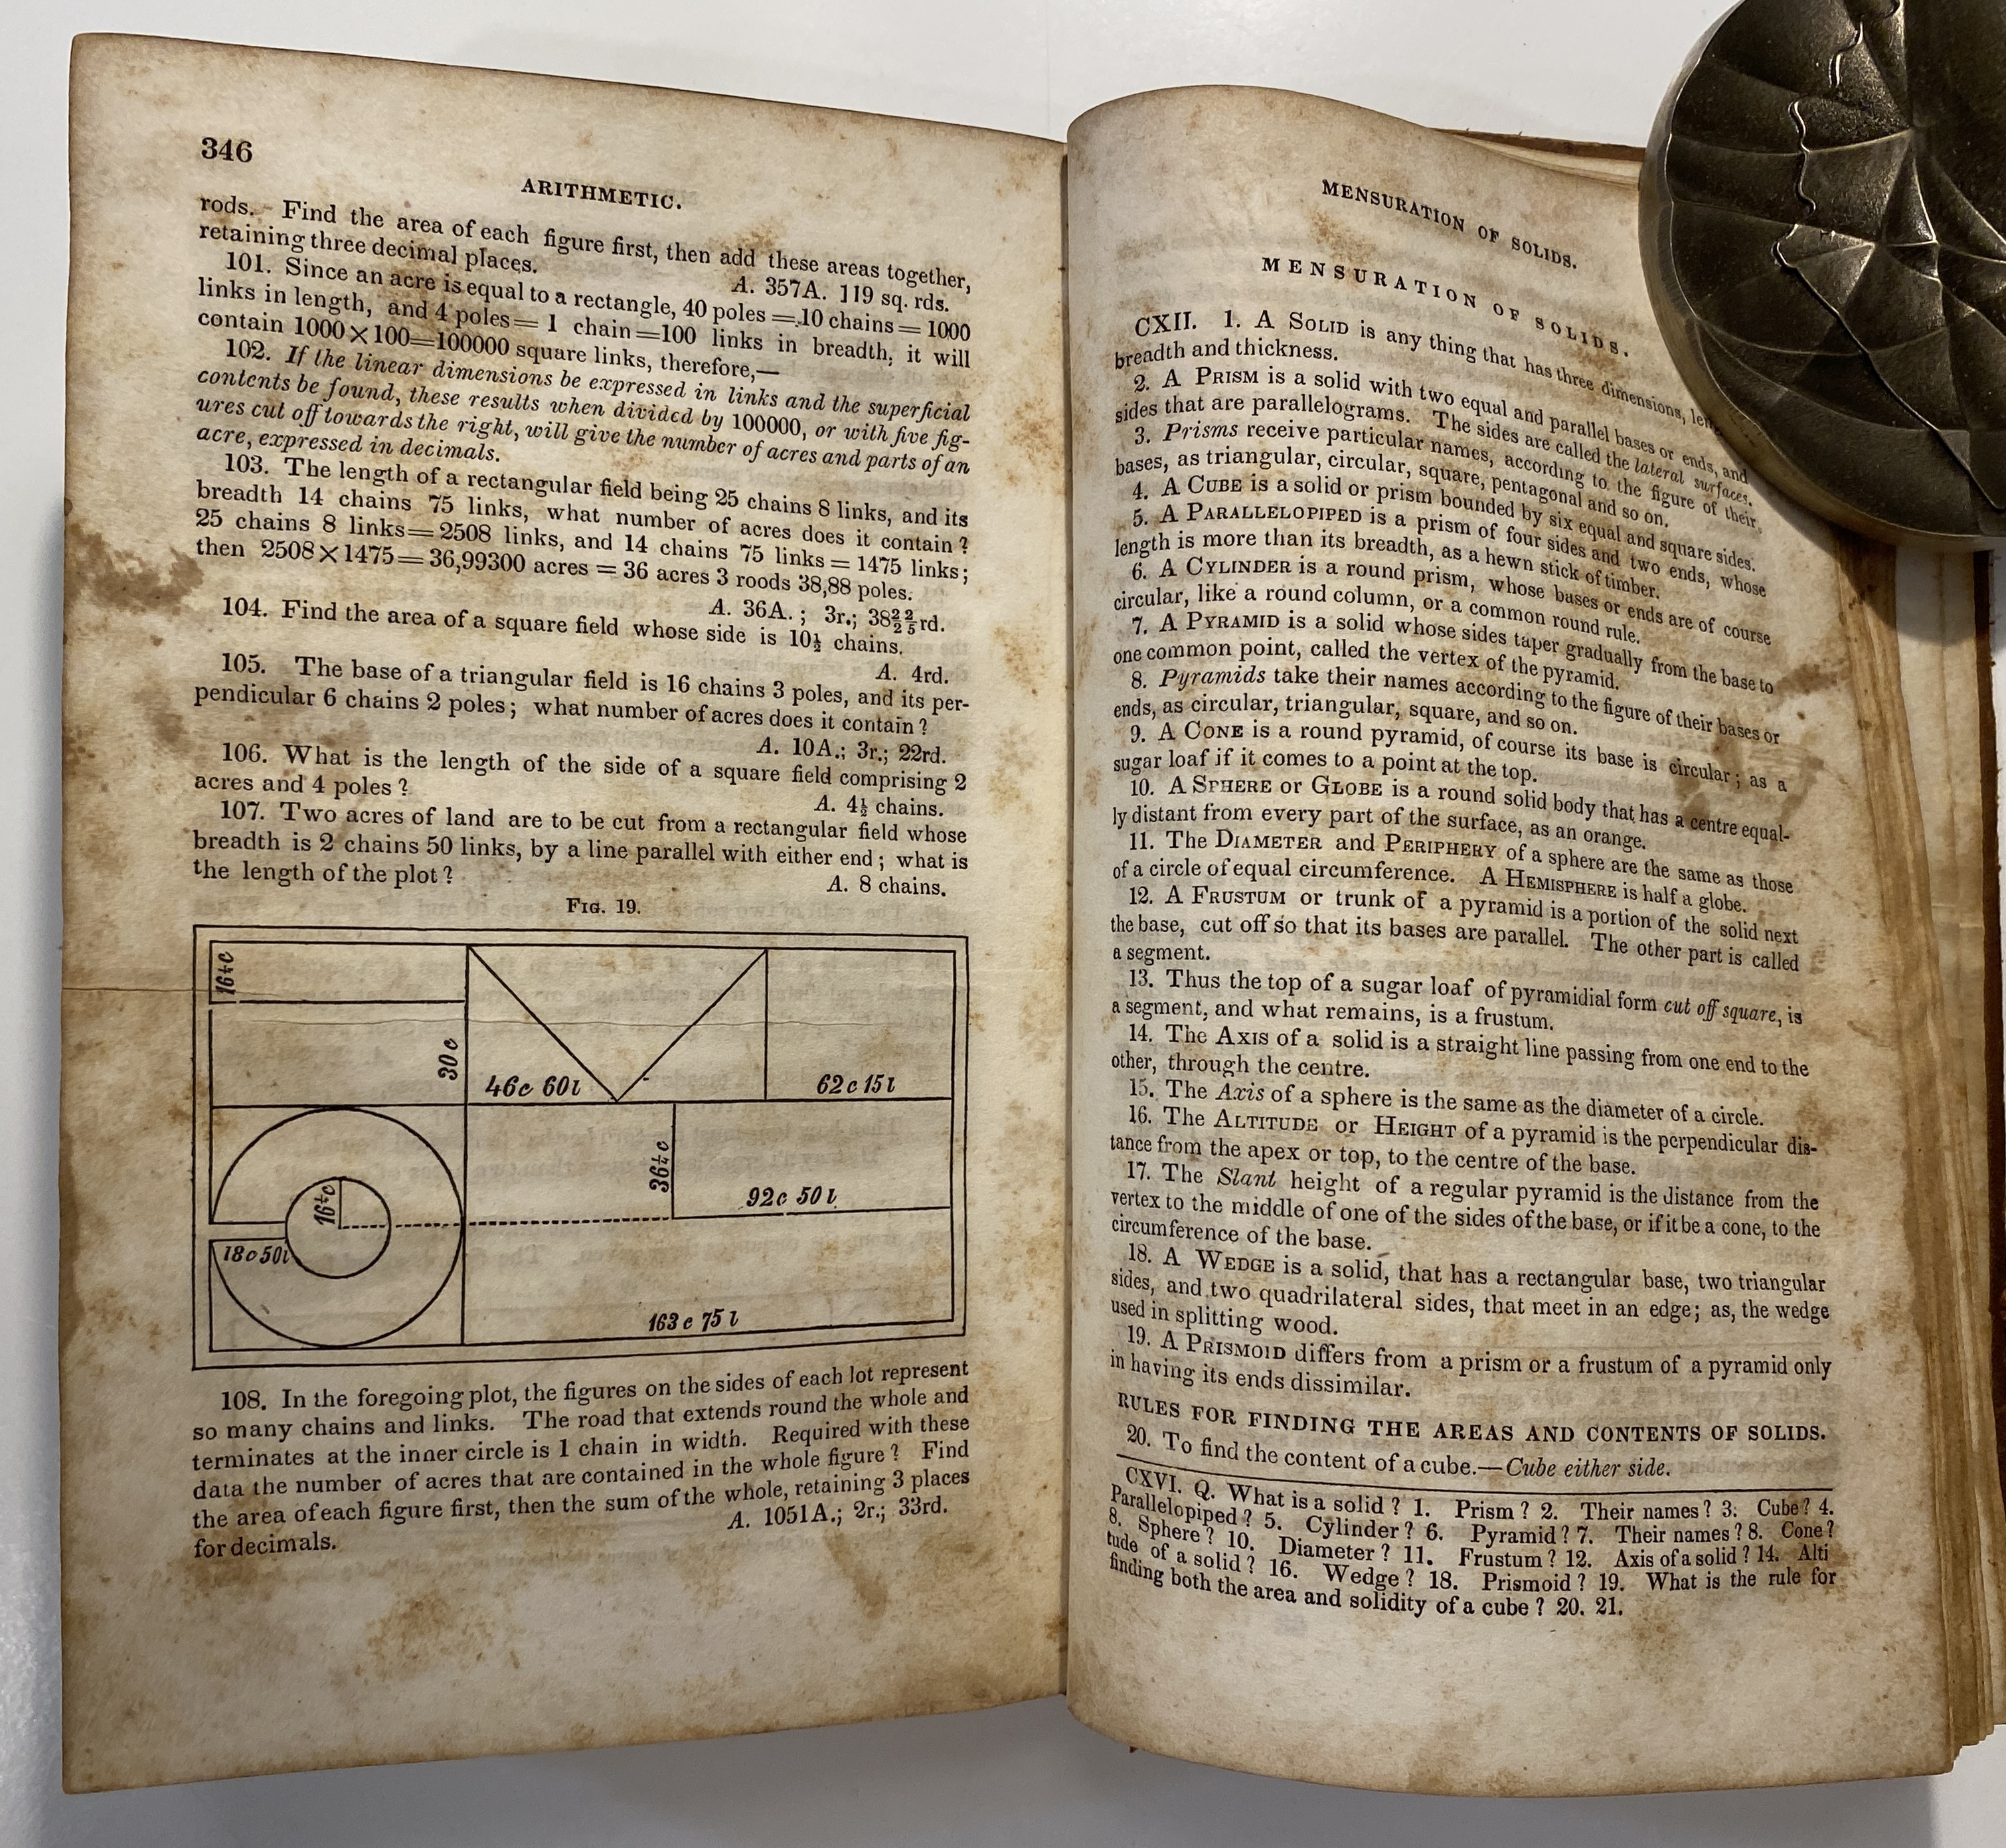 346
ARITHMETIC.
rods. Find the area of each figure first, then add these areas together,
retaining three decimal places.
A. 357A. 119 sq. rds.
101. Since an acre is equal to a rectangle, 40 poles = 10 chains = 1000
links in length, and 4 poles = 1 chain = 100 links in breadth, it will
contain 1000 × 100 = 100000 square links, therefore,—
102. If the linear dimensions be expressed in links and the superficial
contents be found, these results when divided by 100000, or with five fig-
ures cut off towards the right, will give the number of acres and parts of an
acre, expressed in decimals.
103. The length of a rectangular field being 25 chains 8 links, and its
breadth 14 chains 75 links, what number of acres does it contain?
25 chains 8 links = 2508 links, and 14 chains 75 links = 1475 links;
then 2508 × 1475 = 36,99300 acres = 36 acres 3 roods 38,88 poles.
A. 36A.; 3r.; 38 22/25 rd.
104. Find the area of a square field whose side is 10½ chains.
A. 4rd.
105. The base of a triangular field is 16 chains 3 poles, and its per-
pendicular 6 chains 2 poles; what number of acres does it contain?
A. 10A.; 3r.; 22rd.
106. What is the length of the side of a square field comprising 2
acres and 4 poles?
A. 4½ chains.
107. Two acres of land are to be cut from a rectangular field whose
breadth is 2 chains 50 links, by a line parallel with either end; what is
the length of the plot?
A. 8 chains.
FIG. 19.
30 c
46c 60l
62c 15l
92c 50l
18c 50l
163c 75l
108. In the foregoing plot, the figures on the sides of each lot represent
so many chains and links. The road that extends round the whole and
terminates at the inner circle is 1 chain in width. Required with these
data the number of acres that are contained in the whole figure? Find
the area of each figure first, then the sum of the whole, retaining 3 places
for decimals.
A. 1051A.; 2r.; 33rd.
MENSURATION OF SOLIDS.
MENSURATION OF SOLIDS.
CXII. 1. A SOLID is any thing that has three dimensions, len
breadth and thickness.
2. A PRISM is a solid with two equal and parallel bases or ends, and
sides that are parallelograms. The sides are called the lateral surfaces.
3. Prisms receive particular names, according to the figure of their
bases, as triangular, circular, square, pentagonal and so on.
4. A CUBE is a solid or prism bounded by six equal and square sides.
5. A PARALLELOPIPED is a prism of four sides and two ends, whose
length is more than its breadth, as a hewn stick of timber.
6. A CYLINDER is a round prism, whose bases or ends are of course
circular, like a round column, or a common round rule.
7. A PYRAMID is a solid whose sides taper gradually from the base to
one common point, called the vertex of the pyramid.
8. Pyramids take their names according to the figure of their bases or
ends, as circular, triangular, square, and so on.
9. A CONE is a round pyramid, of course its base is circular; as a
sugar loaf if it comes to a point at the top.
10. A SPHERE or GLOBE is a round solid body that has a centre equal-
ly distant from every part of the surface, as an orange.
11. The DIAMETER and PERIPHERY of a sphere are the same as those
of a circle of equal circumference. A HEMISPHERE is half a globe.
12. A FRUSTUM or trunk of a pyramid is a portion of the solid next
the base, cut off so that its bases are parallel. The other part is called
a segment.
13. Thus the top of a sugar loaf of pyramidial form cut off square, is
a segment, and what remains, is a frustum.
14. The AXIS of a solid is a straight line passing from one end to the
other, through the centre.
15. The Axis of a sphere is the same as the diameter of a circle.
16. The ALTITUDE or HEIGHT of a pyramid is the perpendicular dis-
tance from the apex or top, to the centre of the base.
17. The Slant height of a regular pyramid is the distance from the
vertex to the middle of one of the sides of the base, or if it be a cone, to the
circumference of the base.
18. A WEDGE is a solid, that has a rectangular base, two triangular
sides, and two quadrilateral sides, that meet in an edge; as, the wedge
used in splitting wood.
19. A PRISMOID differs from a prism or a frustum of a pyramid only
in having its ends dissimilar.
RULES FOR FINDING THE AREAS AND CONTENTS OF SOLIDS.
20. To find the content of a cube.—Cube either side.
CXVI. Q. What is a solid? 1. Prism? 2. Their names? 3. Cube? 4.
Parallelopiped? 5. Cylinder? 6. Pyramid? 7. Their names? 8. Cone?
8. Sphere? 10. Diameter? 11. Frustum? 12. Axis of a solid? 14. Alti
tude of a solid? 16. Wedge? 18. Prismoid? 19. What is the rule for
finding both the area and solidity of a cube? 20. 21.